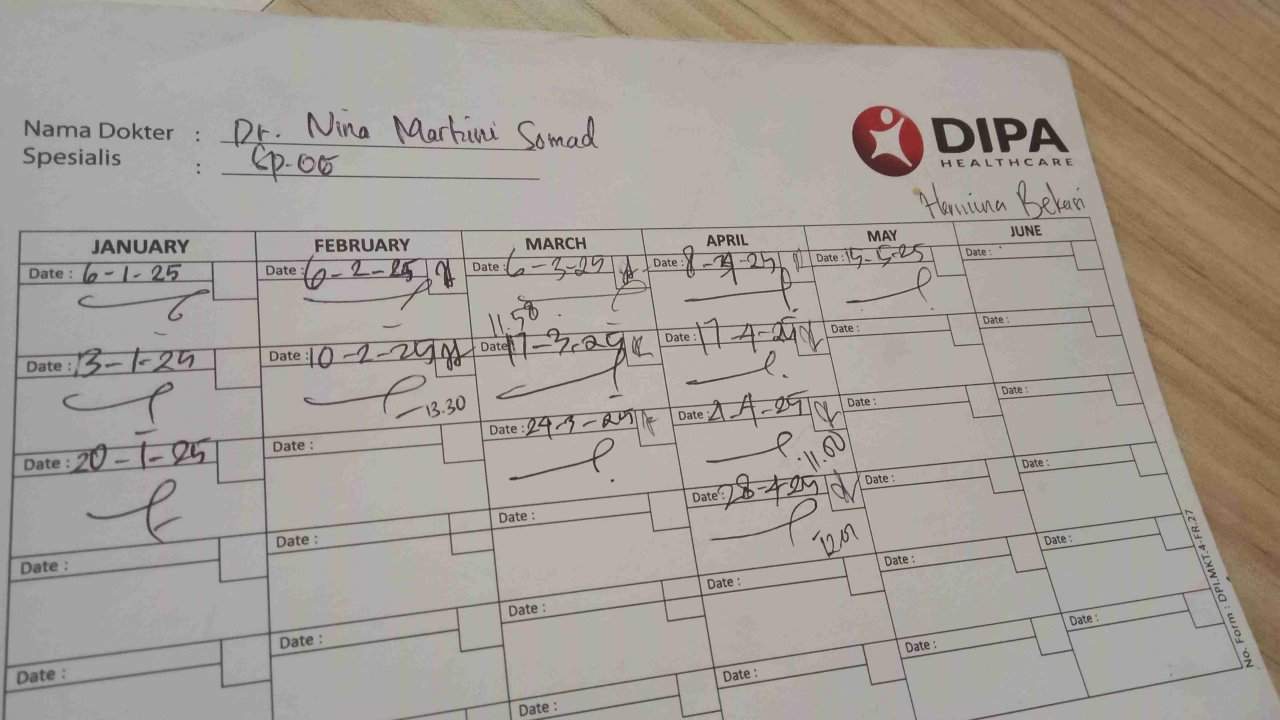 Nama Dokter : Dr. Nina Martini Somad
Spesialis : Sp-OG
DIPA
HEALTHCARE
Hermina Bekasi
JANUARY FEBRUARY MARCH APRIL MAY JUNE
Date : 6-1-25 Date : 6-2-25 Date : 6-3-25 Date : 8-4-25 Date : 15-5-25 Date :
11.58
Date : 13-1-25 Date : 10-2-25 Date : 17-3-25 Date : 17-4-25 Date : Date :
13.30
Date : 20-1-25 Date : Date : 24-3-25 Date : Date : Date :
11.00
Date : Date : Date : Date : 28-4-25 Date : Date :
Date : Date : Date : Date : Date : Date :
Date : Date : Date : Date :
No. Form : DPI.MKT-4-FR.27